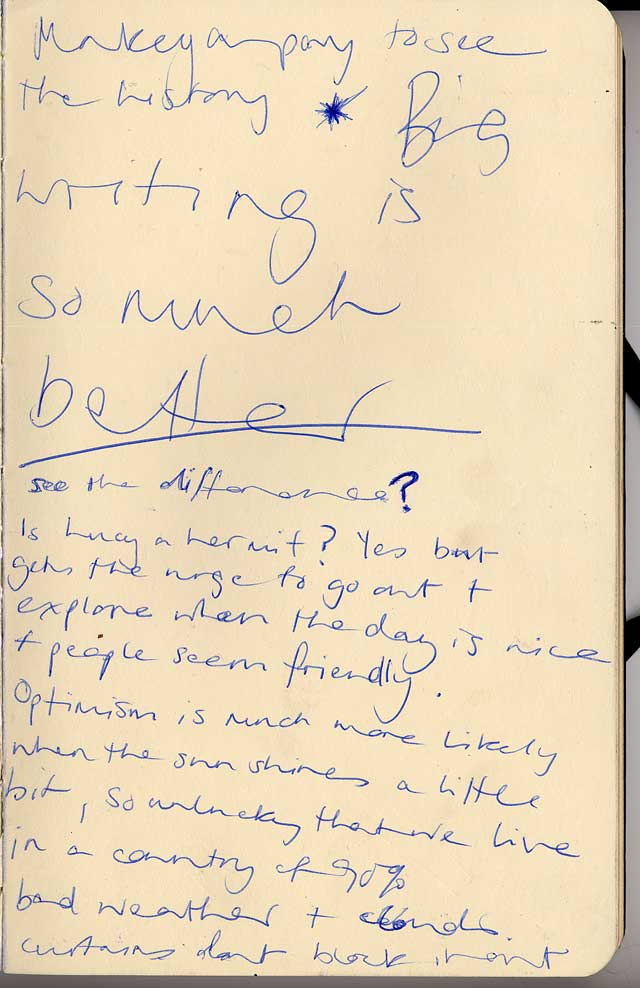 Makeyanpany to see
the history * Big
writing is
so much
better
see the difference?
Is Lucy a hermit? Yes but
gets the urge to go out +
explore when the day is nice
+ people seem friendly.
Optimism is much more likely
when the sun shines a little
bit, so unlucky that we live
in a country of 90%
bad weather + clouds.
curtains dont block it out